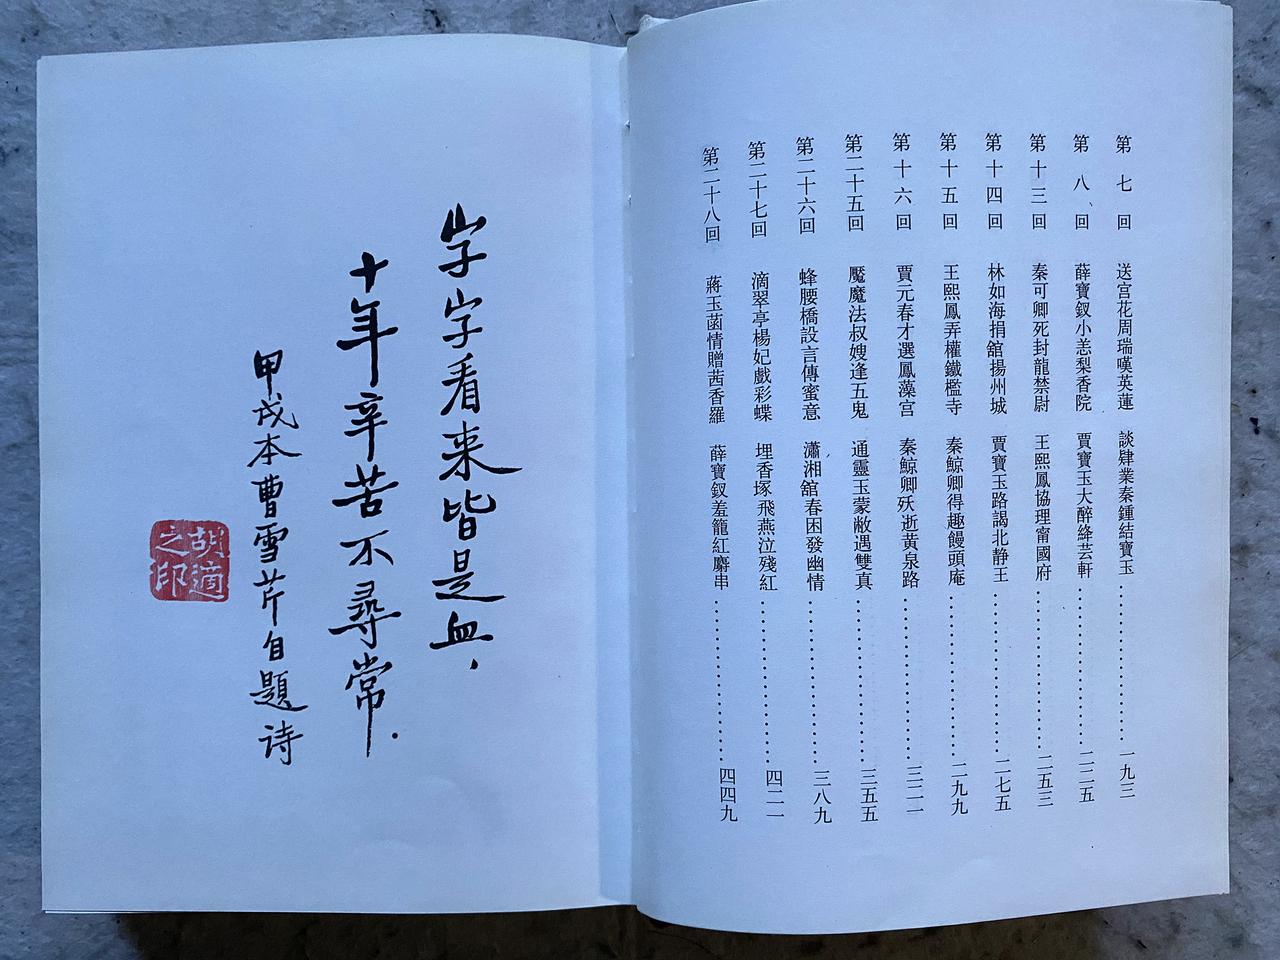 第七回 送宮花周瑞嘆英蓮 談肆業秦鍾結寶玉……………………一九三
第八回 薛寶釵小恙梨香院 賈寶玉大醉絳芸軒……………………二二五
第十三回 秦可卿死封龍禁尉 王熙鳳協理甯國府……………………二五三
第十四回 林如海捐舘揚州城 賈寶玉路謁北静王……………………二七五
第十五回 王熙鳳弄權鐵檻寺 秦鯨卿得趣饅頭庵……………………二九九
第十六回 賈元春才選鳳藻宮 秦鯨卿殀逝黃泉路……………………三二一
第二十五回 魘魔法叔嫂逢五鬼 通靈玉蒙敝遇雙真……………………三五五
第二十六回 蜂腰橋設言傳蜜意 瀟湘舘春困發幽情……………………三八九
第二十七回 滴翠亭楊妃戲彩蝶 埋香塚飛燕泣殘紅……………………四二一
第二十八回 蔣玉菡情贈茜香羅 薛寶釵羞籠紅麝串……………………四四九
字字看来皆是血，
十年辛苦不尋常.
甲戌本曹雪芹自題詩
胡適之印